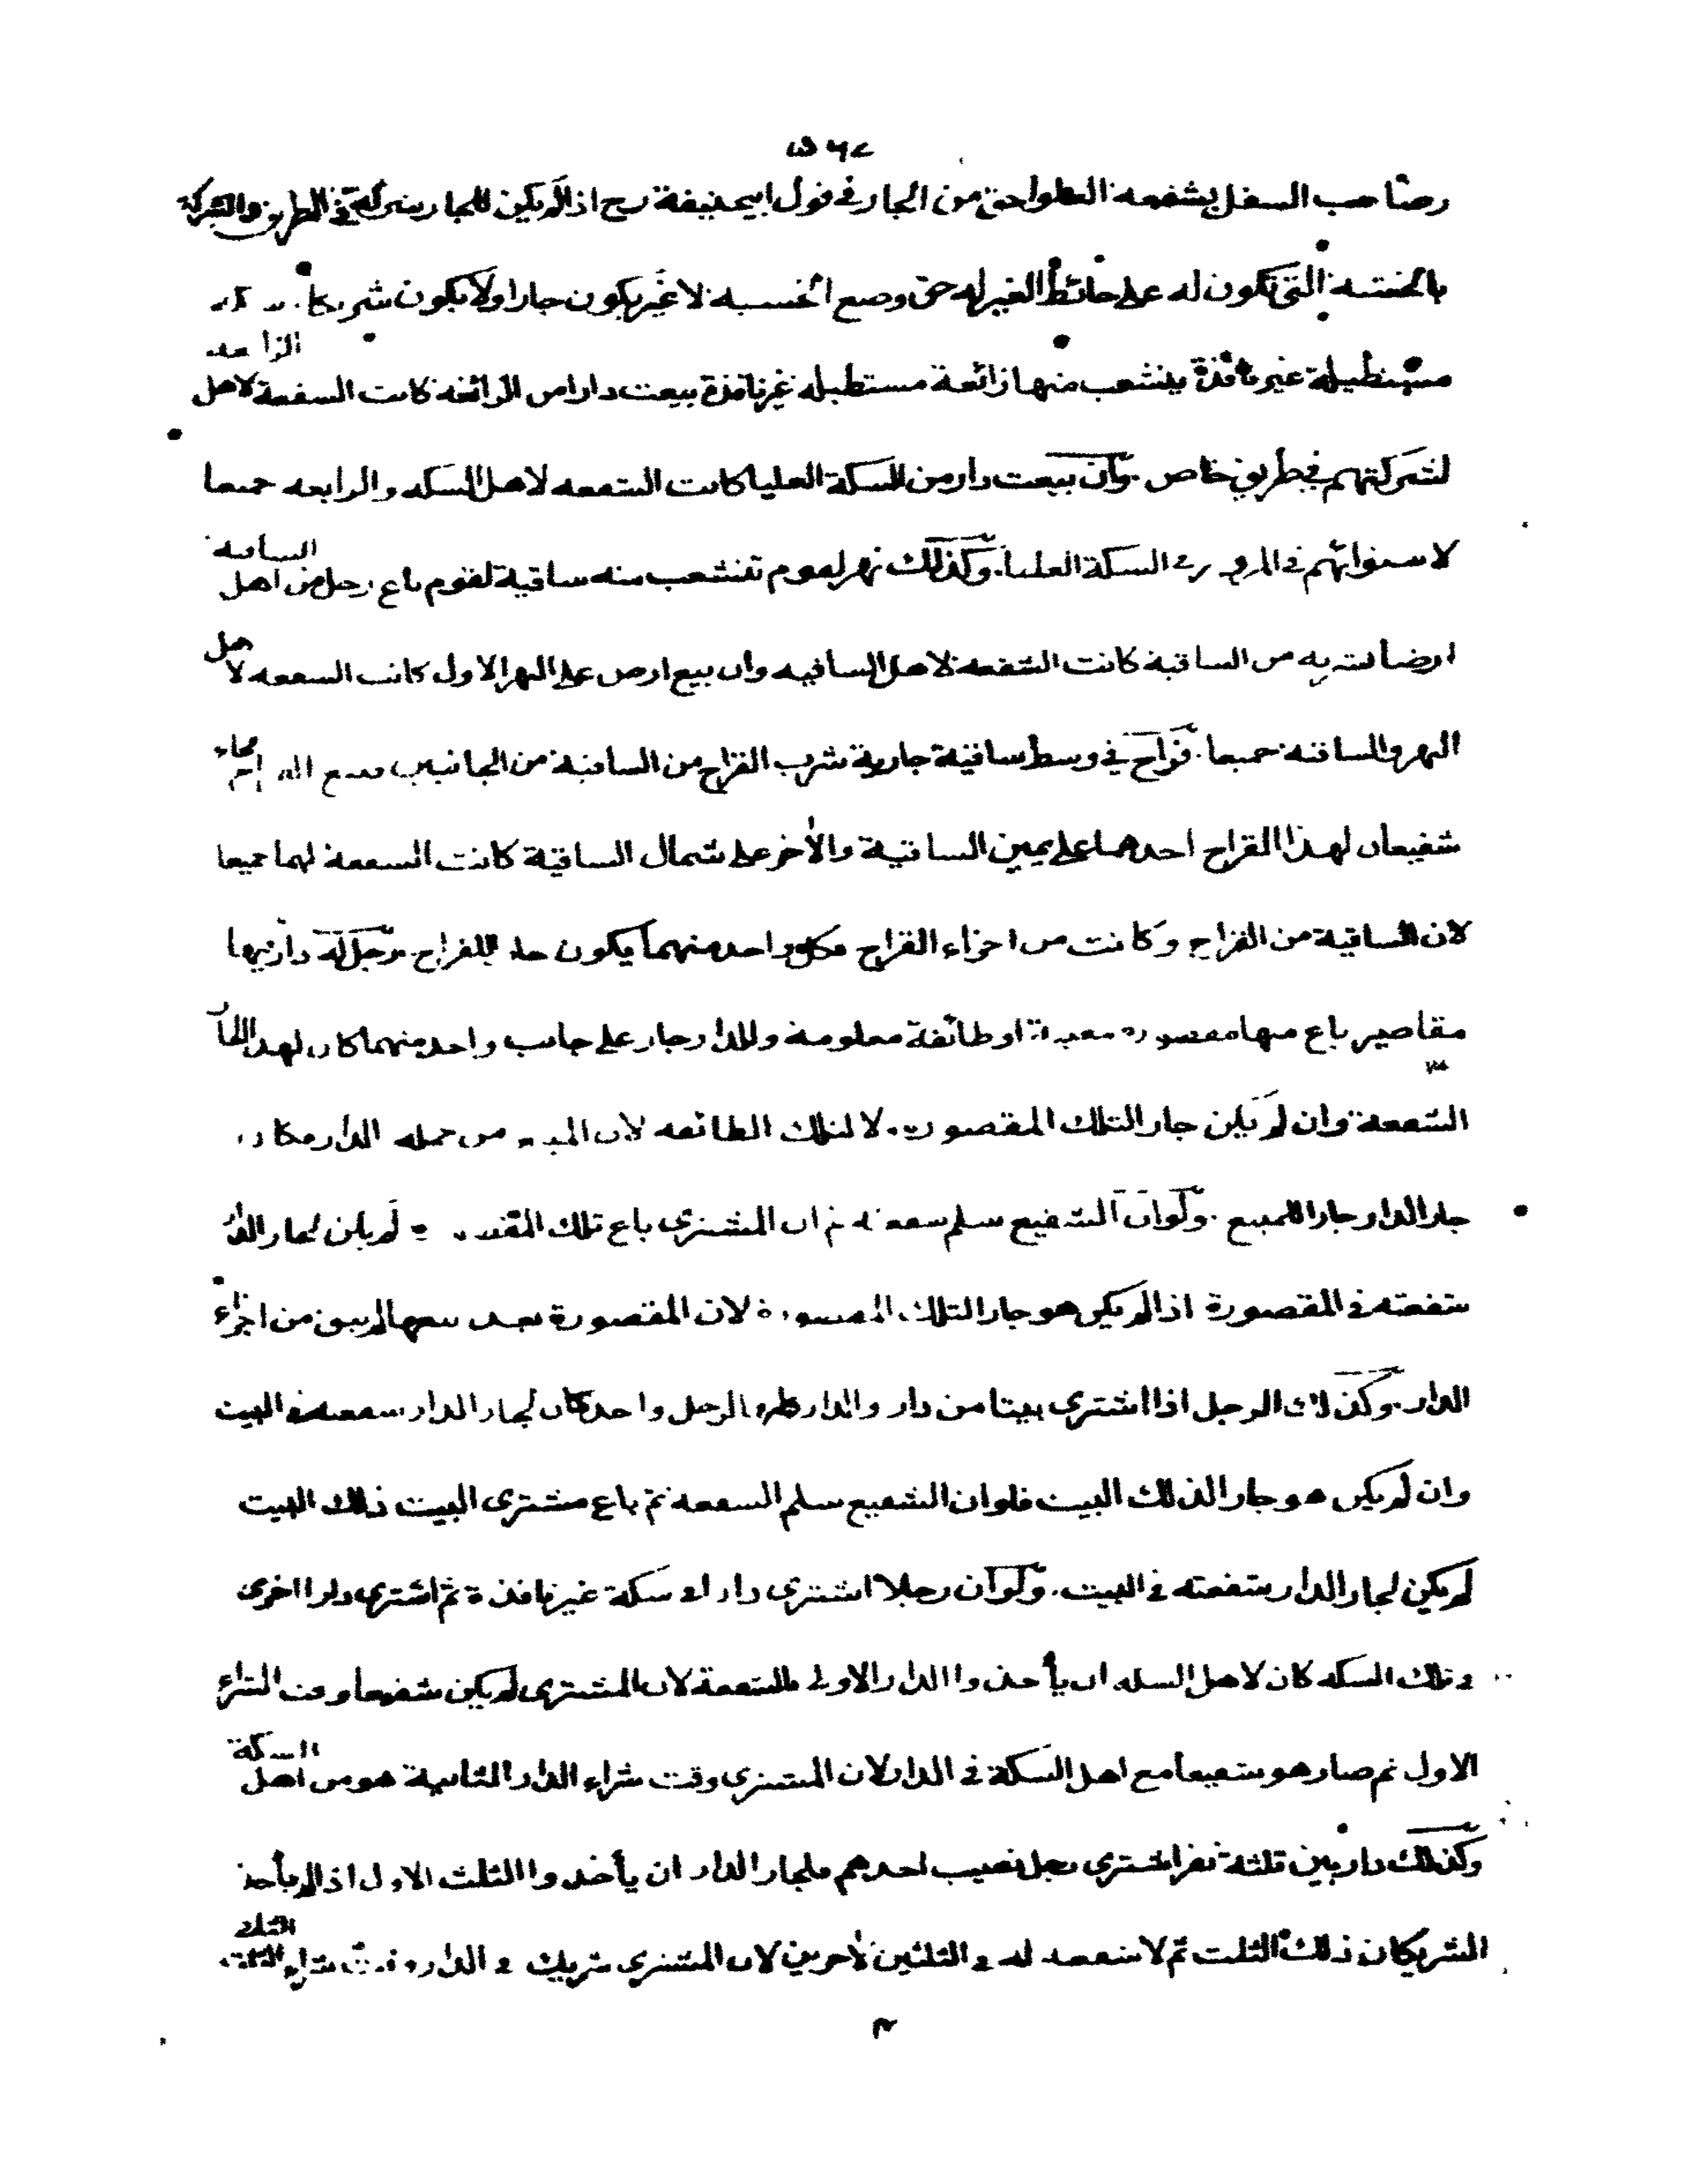 وصاحب السفل بشفعة العلو احق من الجار في قول ابيحنيفة رح اذا لم يكن للجار شركة في الطريق والشركة
بالخشبة التي تكون له على حائط الغير له حق وضع الخشبة لا غير يكون جارا ولا يكون شريكا سكة
مستطيلة غير نافذة ينشعب منها زائغة مستطيلة غير نافذة بيعت دارا من الزائغة كانت الشفعة لاهل الزائغة
لشركتهم في طريق خاص وان بيعت دار من السكة العليا كانت الشفعة لاهل السكة والزائغة جميعا
لاستوائهم في المرور في السكة العليا وكذلك نهر لقوم تنشعب منه ساقية لقوم باع رجل من اهل الساقية
ارضا شربه من الساقية كانت الشفعة لاهل الساقية وان بيع ارض على النهر الاول كانت الشفعة لاهل
النهر والساقية جميعا قراح في وسط ساقية جارية شرب القراح من الساقية من الجانبين فبيع القراح فجاء
شفيعان لهذا القراح احدهما على يمين الساقية والأخر على شمال الساقية كانت الشفعة لهما جميعا
لان الساقية من القراح وكانت من اجزاء القراح فكل واحد منهما يكون جار للقراح رجل له دار فيها
مقاصير باع منها مقصورة معينة او طائفة معلومة وللدار جار على جانب واحد منهما كان لهذا الجار
الشفعة وان لم يكن جار التلك المقصورة لا لتلك الطائفة لان المبيع من جملة الدار فكان
جار الدار جارا للمبيع ولو ان الشفيع سلم شفعته ثم ان المشتري باع تلك المقصورة لم يكن لجار الدار
شفعته في المقصورة اذا لم يكن هو جار التلك المقصورة لان المقصورة بعد بيعها لم يبق من اجزاء
الدار وكذلك الرجل اذا اشترى بيتا من دار والدار كلها لرجل واحد كان لجار الدار شفعته في البيت
وان لم يكن هو جارا لذلك البيت فلو ان الشفيع سلم الشفعة ثم باع مشتري البيت ذلك البيت
لم يكن لجار الدار شفعته في البيت ولو ان رجلا اشترى دارا في سكة غير نافذة ثم اشترى دارا اخرى
في تلك السكة كان لاهل السكة ان يأخذوا الدار الاولى بالشفعة لان المشتري لم يكن شفيعا وقت الشراء
الاول ثم صار هو شفيعا مع اهل السكة في الدار لان المشتري وقت شراء الدار الثانية هو من اهل السكة
وكذلك دار بين ثلثة نفر اشترى رجل نصيب احدهم فلجار الدار ان يأخذوا الثلث الاول اذا لم يأخذ
الشريكان ذلك الثلث ثم لا شفعة له في الثلثين لأخرين لان المشتري شريك في الدار وقت شراء الثلث